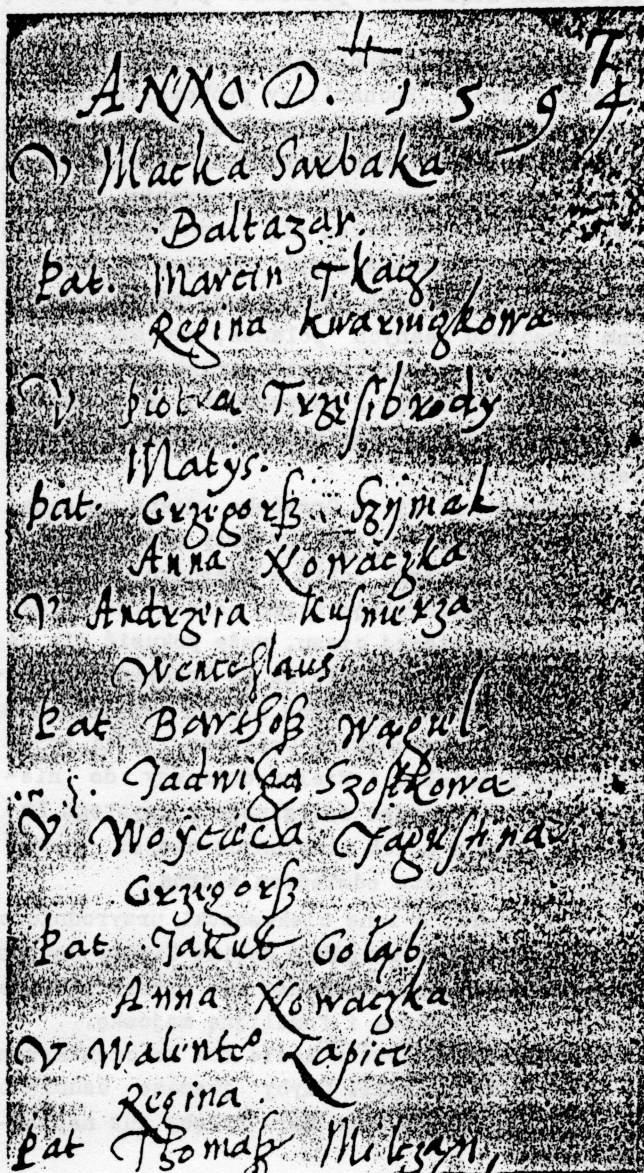 4 7
ANNO D. 1594
V Macka Sarbaka
Baltazar.
Pat. Marcin Tkacz
Regina Kwarniczkowa
V Piotra Trzęsibrody
Matys.
Pat. Grzegorß Szymak
Anna Nowaczka
V Andrzeia Kusnierza
Wenceslaus.
Pat Barthoß Wągiel
Jadwiga Szostkowa
V Woyciecha Japustina
Grzegorß
Pat Jakub Gołąb,
Anna Nowaczka
V Walentego Łapicc
Regina.
Pat Thomaß Milczan,